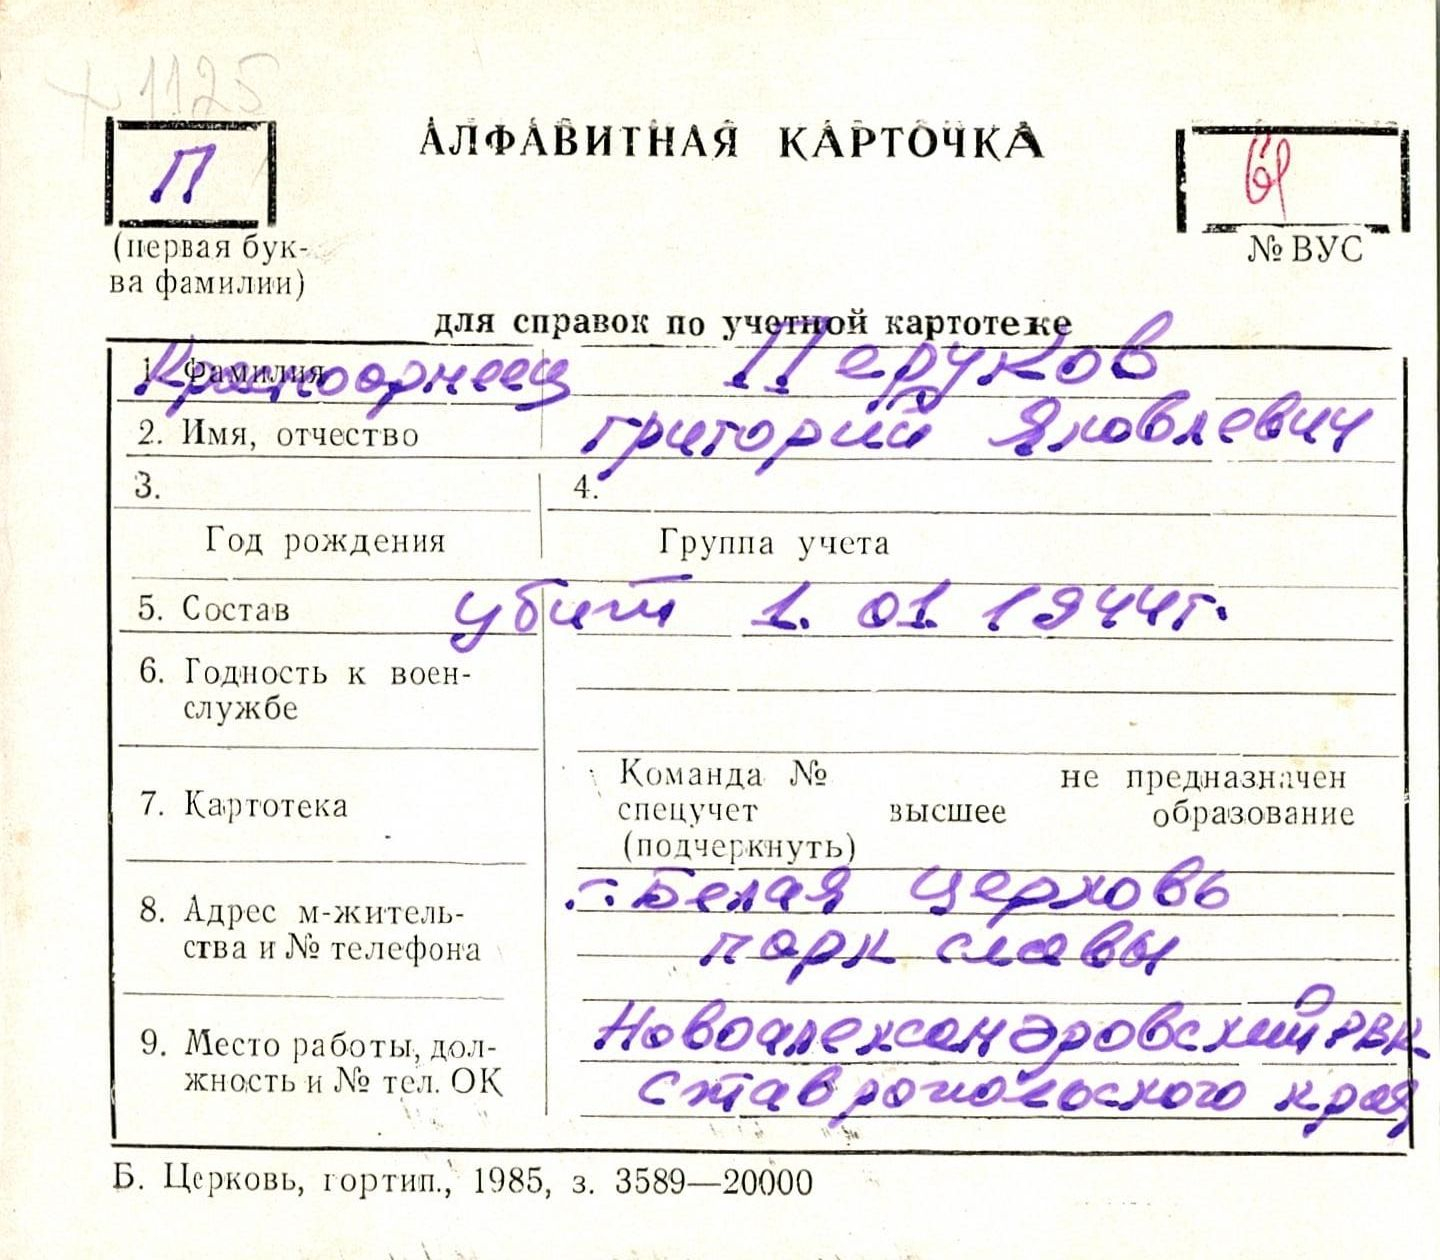 1125
АЛФАВИТНАЯ КАРТОЧКА
П
(первая бук-
ва фамилии)
№ ВУС
для справок по учетной картотеке
1. Фамилия
Красноармеец
Перуков
2. Имя, отчество
Григорий Яковлевич
3.
4.
Год рождения
Группа учета
5. Состав
убит 1. 01 1944г.
6. Годность к воен-
службе
7. Картотека
Команда № не предназначен
спецучет высшее образование
(подчеркнуть)
8. Адрес м-житель-
ства и № телефона
г. Белая Церковь
парк славы
9. Место работы, дол-
жность и № тел. ОК
Новоалександровский РВК
Ставропольского края
Б. Церковь, гортип., 1985, з. 3589—20000